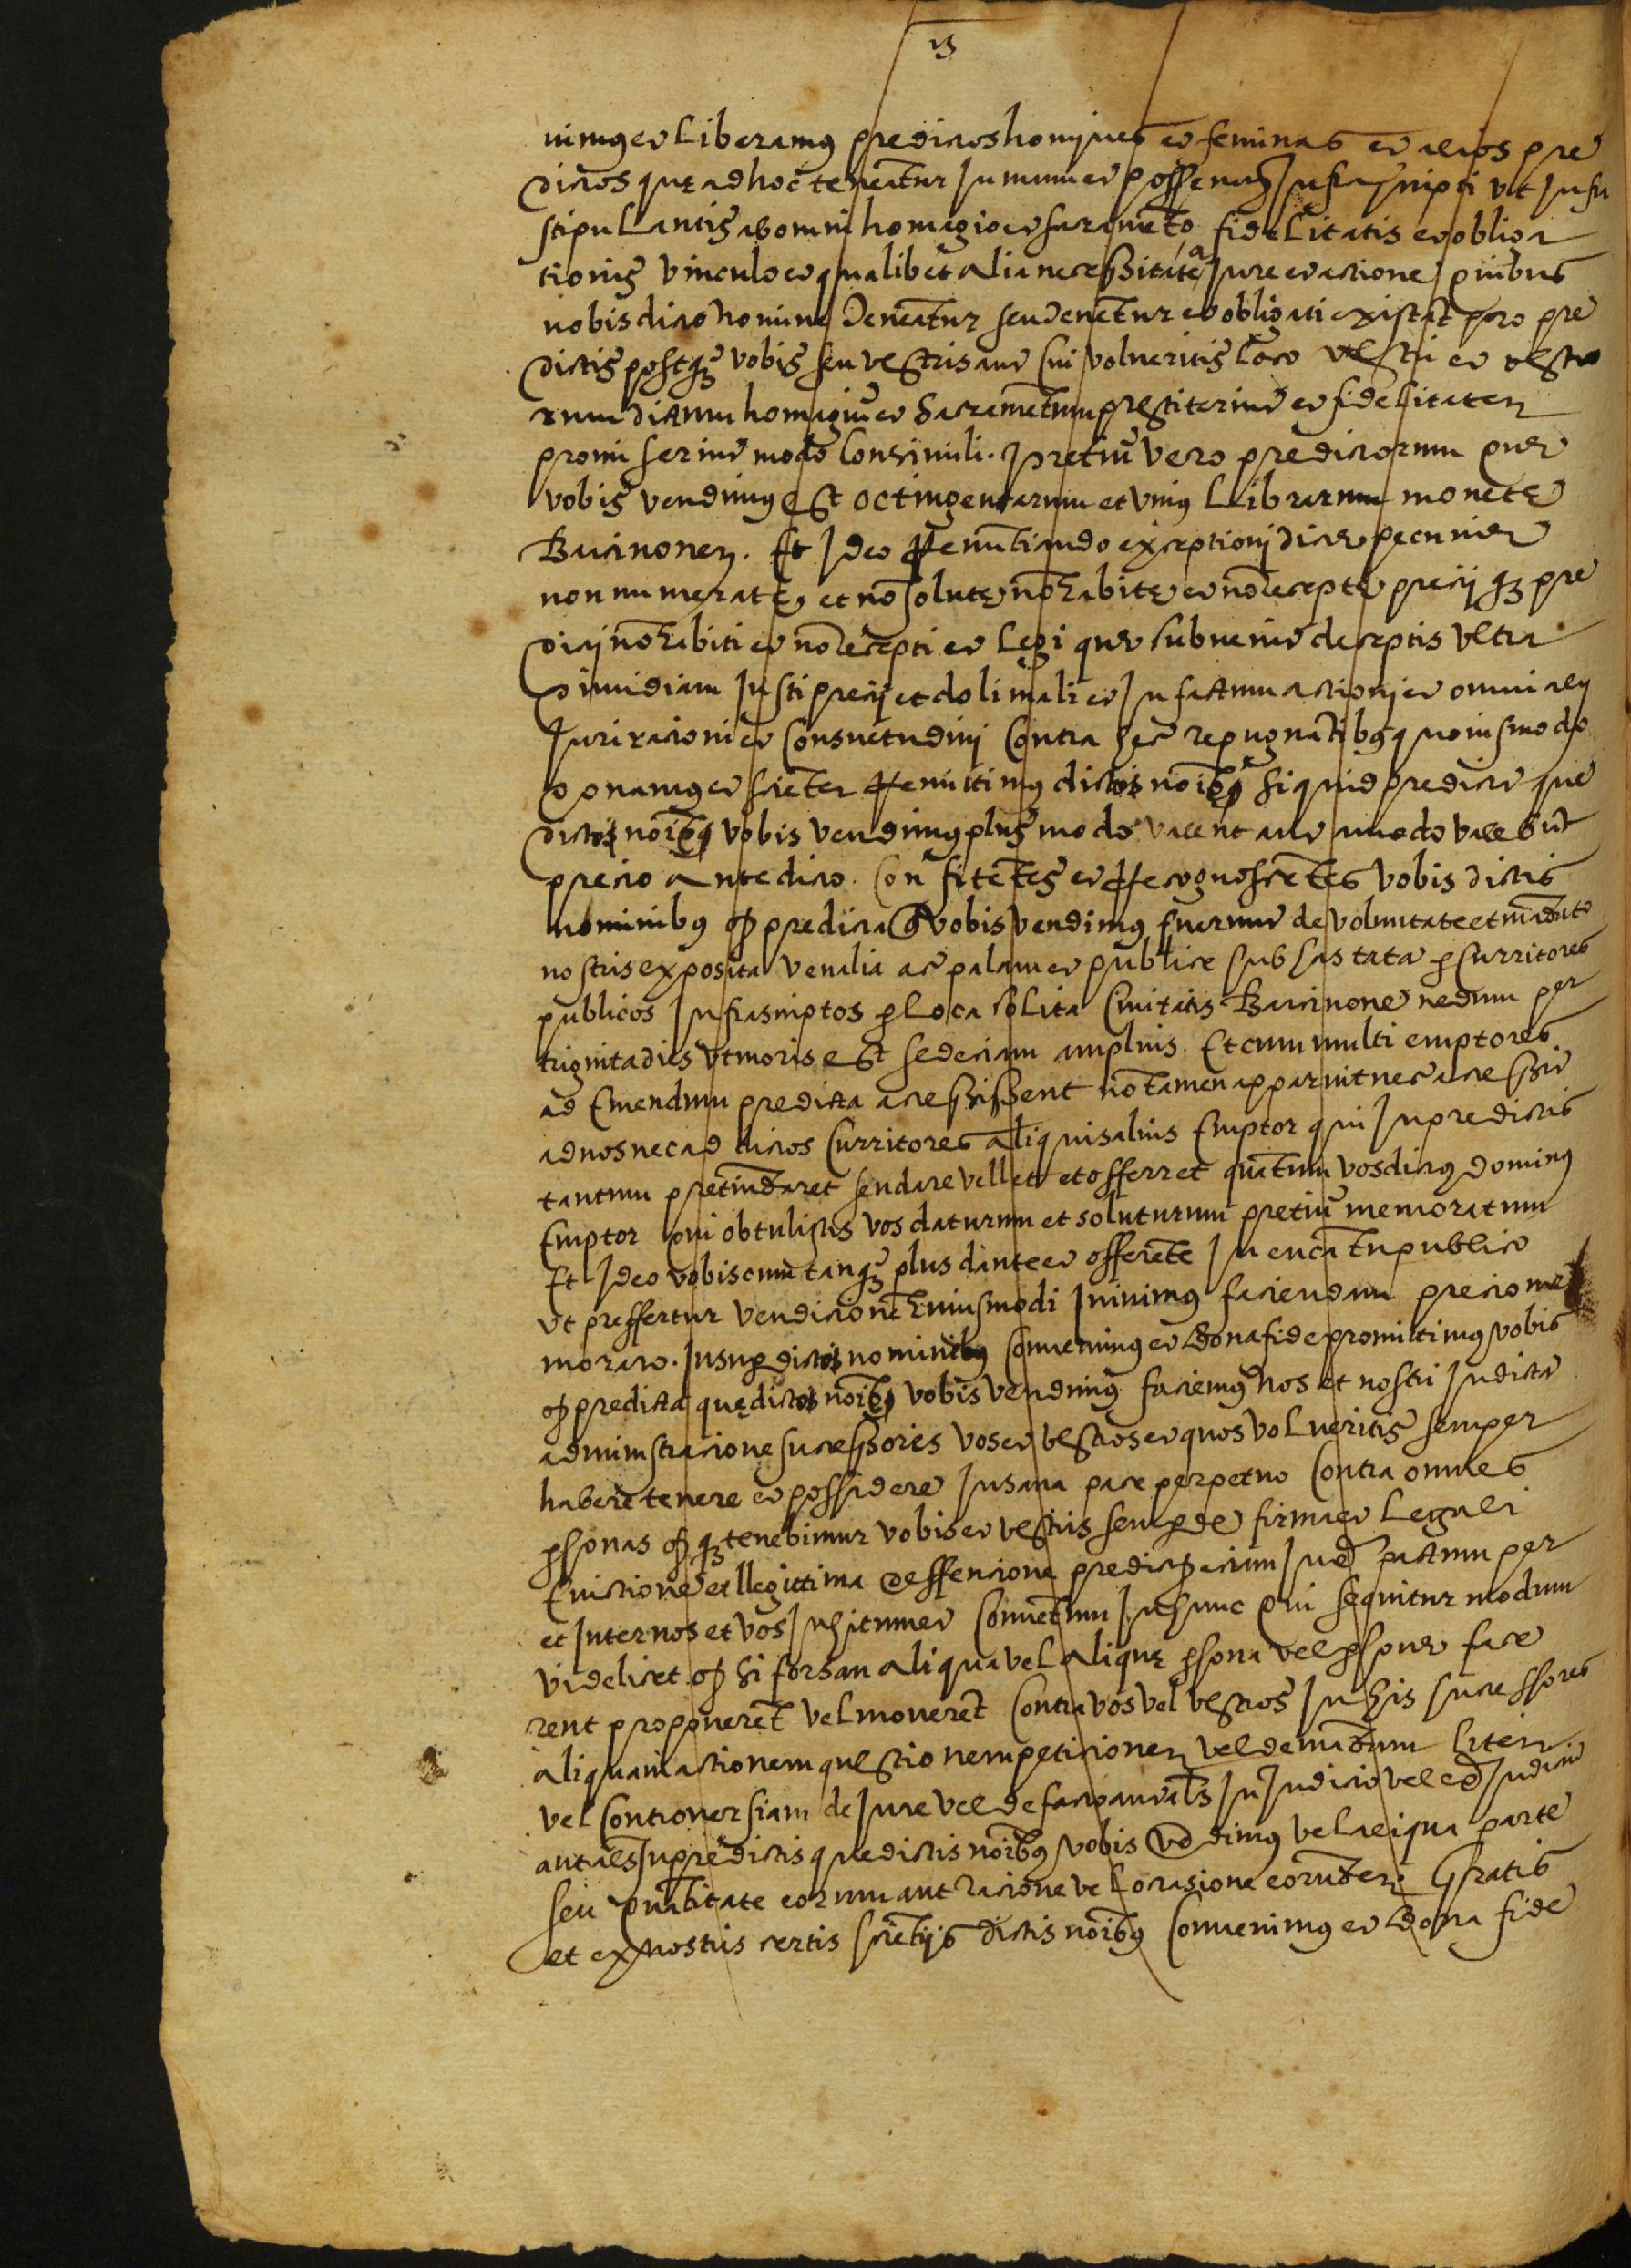 nimus et Liberamus predictos homines et feminas et alios pre
dictos qui ad hoc teneantur In manu et posse not Infrascripti ut Infra
stipulantis ab omni homagio et sacramēto fidelitatis et obliga
tionis vinculo et qualibet alia necessitate Jure et actione quibus
nobis dicto nomine teneātur seu tenētur et obligati existāt pro pre
dictis postqz vobis seu vestris aut cui volueritis loco vestri et vestro
rum dictum homagiū et Sacramētum prestiterint et fidelitatem
promiserint modo consimili. Pretiū vero predictorum que
vobis vendimus est octingentarum et unius Llibrarum monete
Barcinonen. Et Ideo Renuntiando exceptioni dicte pecunie
non numerate, et nō solute nō habite et nō recepte precij qz pre
dicti nō habiti et nō recepti et Legi que subvenit deceptis ultra
dimidiam Justi precij et doli mali et In factum actioni et omni alij
Juri racioni et Consuetudini Contra hec repugnātibus quovismodo
Donamus et sciēter Remittimus dictis noibus si quid predicte que
dictis noibus vobis vendimus plus modo valent aut amodo valebūt
precio antedicto. Confitētes et Recognoscētes vobis dictis
nominibus qp predicta que vobis vendimus fuerunt de voluntate et mādato
nostris exposita venalia ac palam et publice subhastata p Curritores
publicos Infrascriptos p Loca solita Civitatis Barcinone nedum per
triginta dies ut moris est sed eciam amplius. Et cum multi emptores
ad Emendum predicta accessissent nō tamen apparuit nec accessit
ad nos nec ad dictos Curritores aliquis alius Emptor qui In predictis
tantum pretiū daret seu dare vellet et offerret quātum vos dictus dominus
Emptor qui obtulistis vos daturum et soluturum pretiū memoratum
Et Ideo vobiscum tanqz plus dante et offerēte In encātu publico
ut preffertur vendicionē huiusmodi Inivimus faciendam precio me
morato. Insup dictis nominibus Convenimus et Bona fide promittimus vobis
qp predicta que dictis noibus vobis vendimus faciemus nos et nostri In dicta
administracione successores vos et vestros et quos volueritis semper
habere tenere et possidere In sana pace perpetuo Contra omnes
psonas qp qz tenebimur vobis et vestris semp de firma et Legali
Evictione et llegittima deffencione predictoz eciam Inde pactum per
et Inter nos et vos Inhitum et Convētum In hunc qui sequitur modum
videlicet qp si forsan aliqua vel alique psona vel psone face
rent proponerēt vel moverēt Contra vos vel vestros In his successores
aliquam actionem questionem peticionem vel demādam litem
vel Controversiam de Jure vel de facto aut als In Judicio vel ex Judicium
aut als In predictis que dictis noibus vobis vēdimus vel aliqua parte
seu quātitate eorum aut racione vel occasione eorūdem. Gratis
et ex nostris certis sciētijs dictis noibus Convenimus et Bona fide